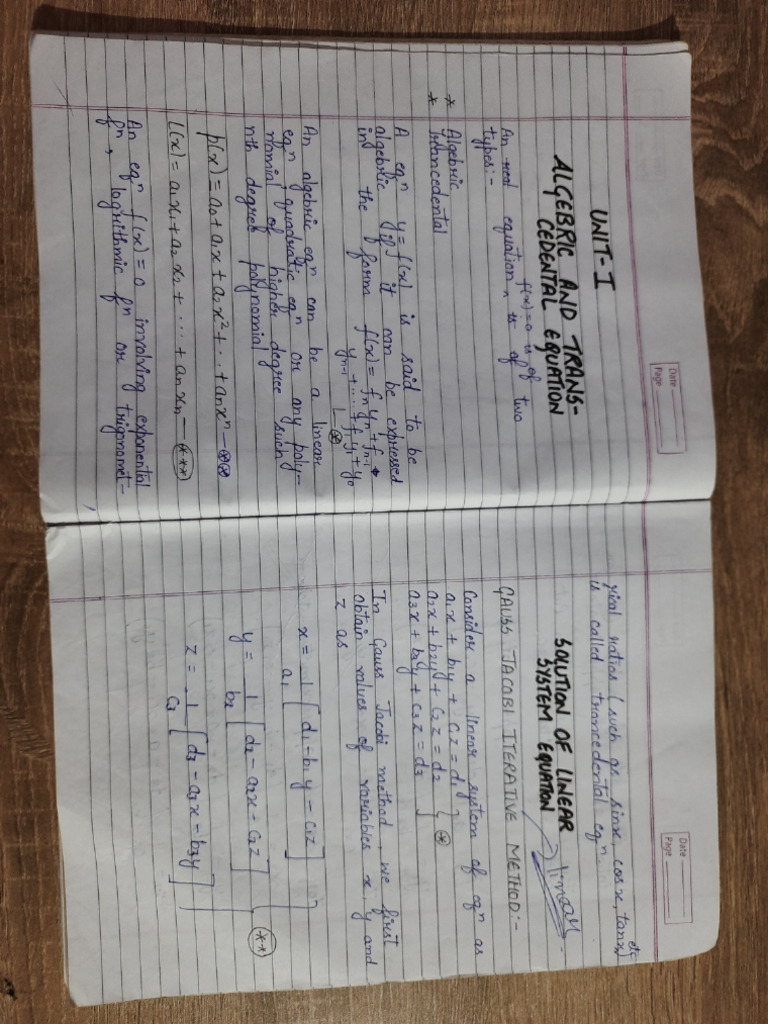 Date
Page
UNIT-I
ALGEBRIC AND TRANS-
CEDENTAL EQUATION
An real equation f(x)=0 is of two
types:-
* Algebric
* trancedental
A eqⁿ y = f(x) is said to be
algebric if it can be expressed
in the form f(x) = fₙyⁿ + fₙ₋₁
yₙ₋₁ + .... + f₁y₁ + y₀
— ⊛
An algebric eqⁿ can be a linear
eqⁿ, quadratic eqⁿ or any poly-
nomial of higher degree such
nth degree polynomial
p(x) = a₀ + a₁x + a₂x² + .. + aₙxⁿ — (**)
L(x) = a₁x₁ + a₂x₂ + .... + aₙxₙ — (***)
An eqⁿ f(x) = 0 involving exponental
fⁿ, logrithmic fⁿ or trignomet-
Date
Page
rical ratios (such as sinx, cosx, tanx, etc)
is called trancedental eqⁿ.
SOLUTION OF LINEAR
SYSTEM EQUATION
linear
GAUSS JACOBI ITERATIVE METHOD:-
Consider a linear system of eqⁿ as
a₁x + b₁y + c₁z = d₁
a₂x + b₂y + c₂z = d₂ } ⊛
a₃x + b₃y + c₃z = d₃
In Gauss Jacobi method, we first
obtain values of variables x, y and
z as
x = 1/a₁ [d₁ - b₁y - c₁z]
y = 1/b₂ [d₂ - a₂x - c₂z] } (**)
z = 1/c₃ [d₃ - a₃x - b₃y]